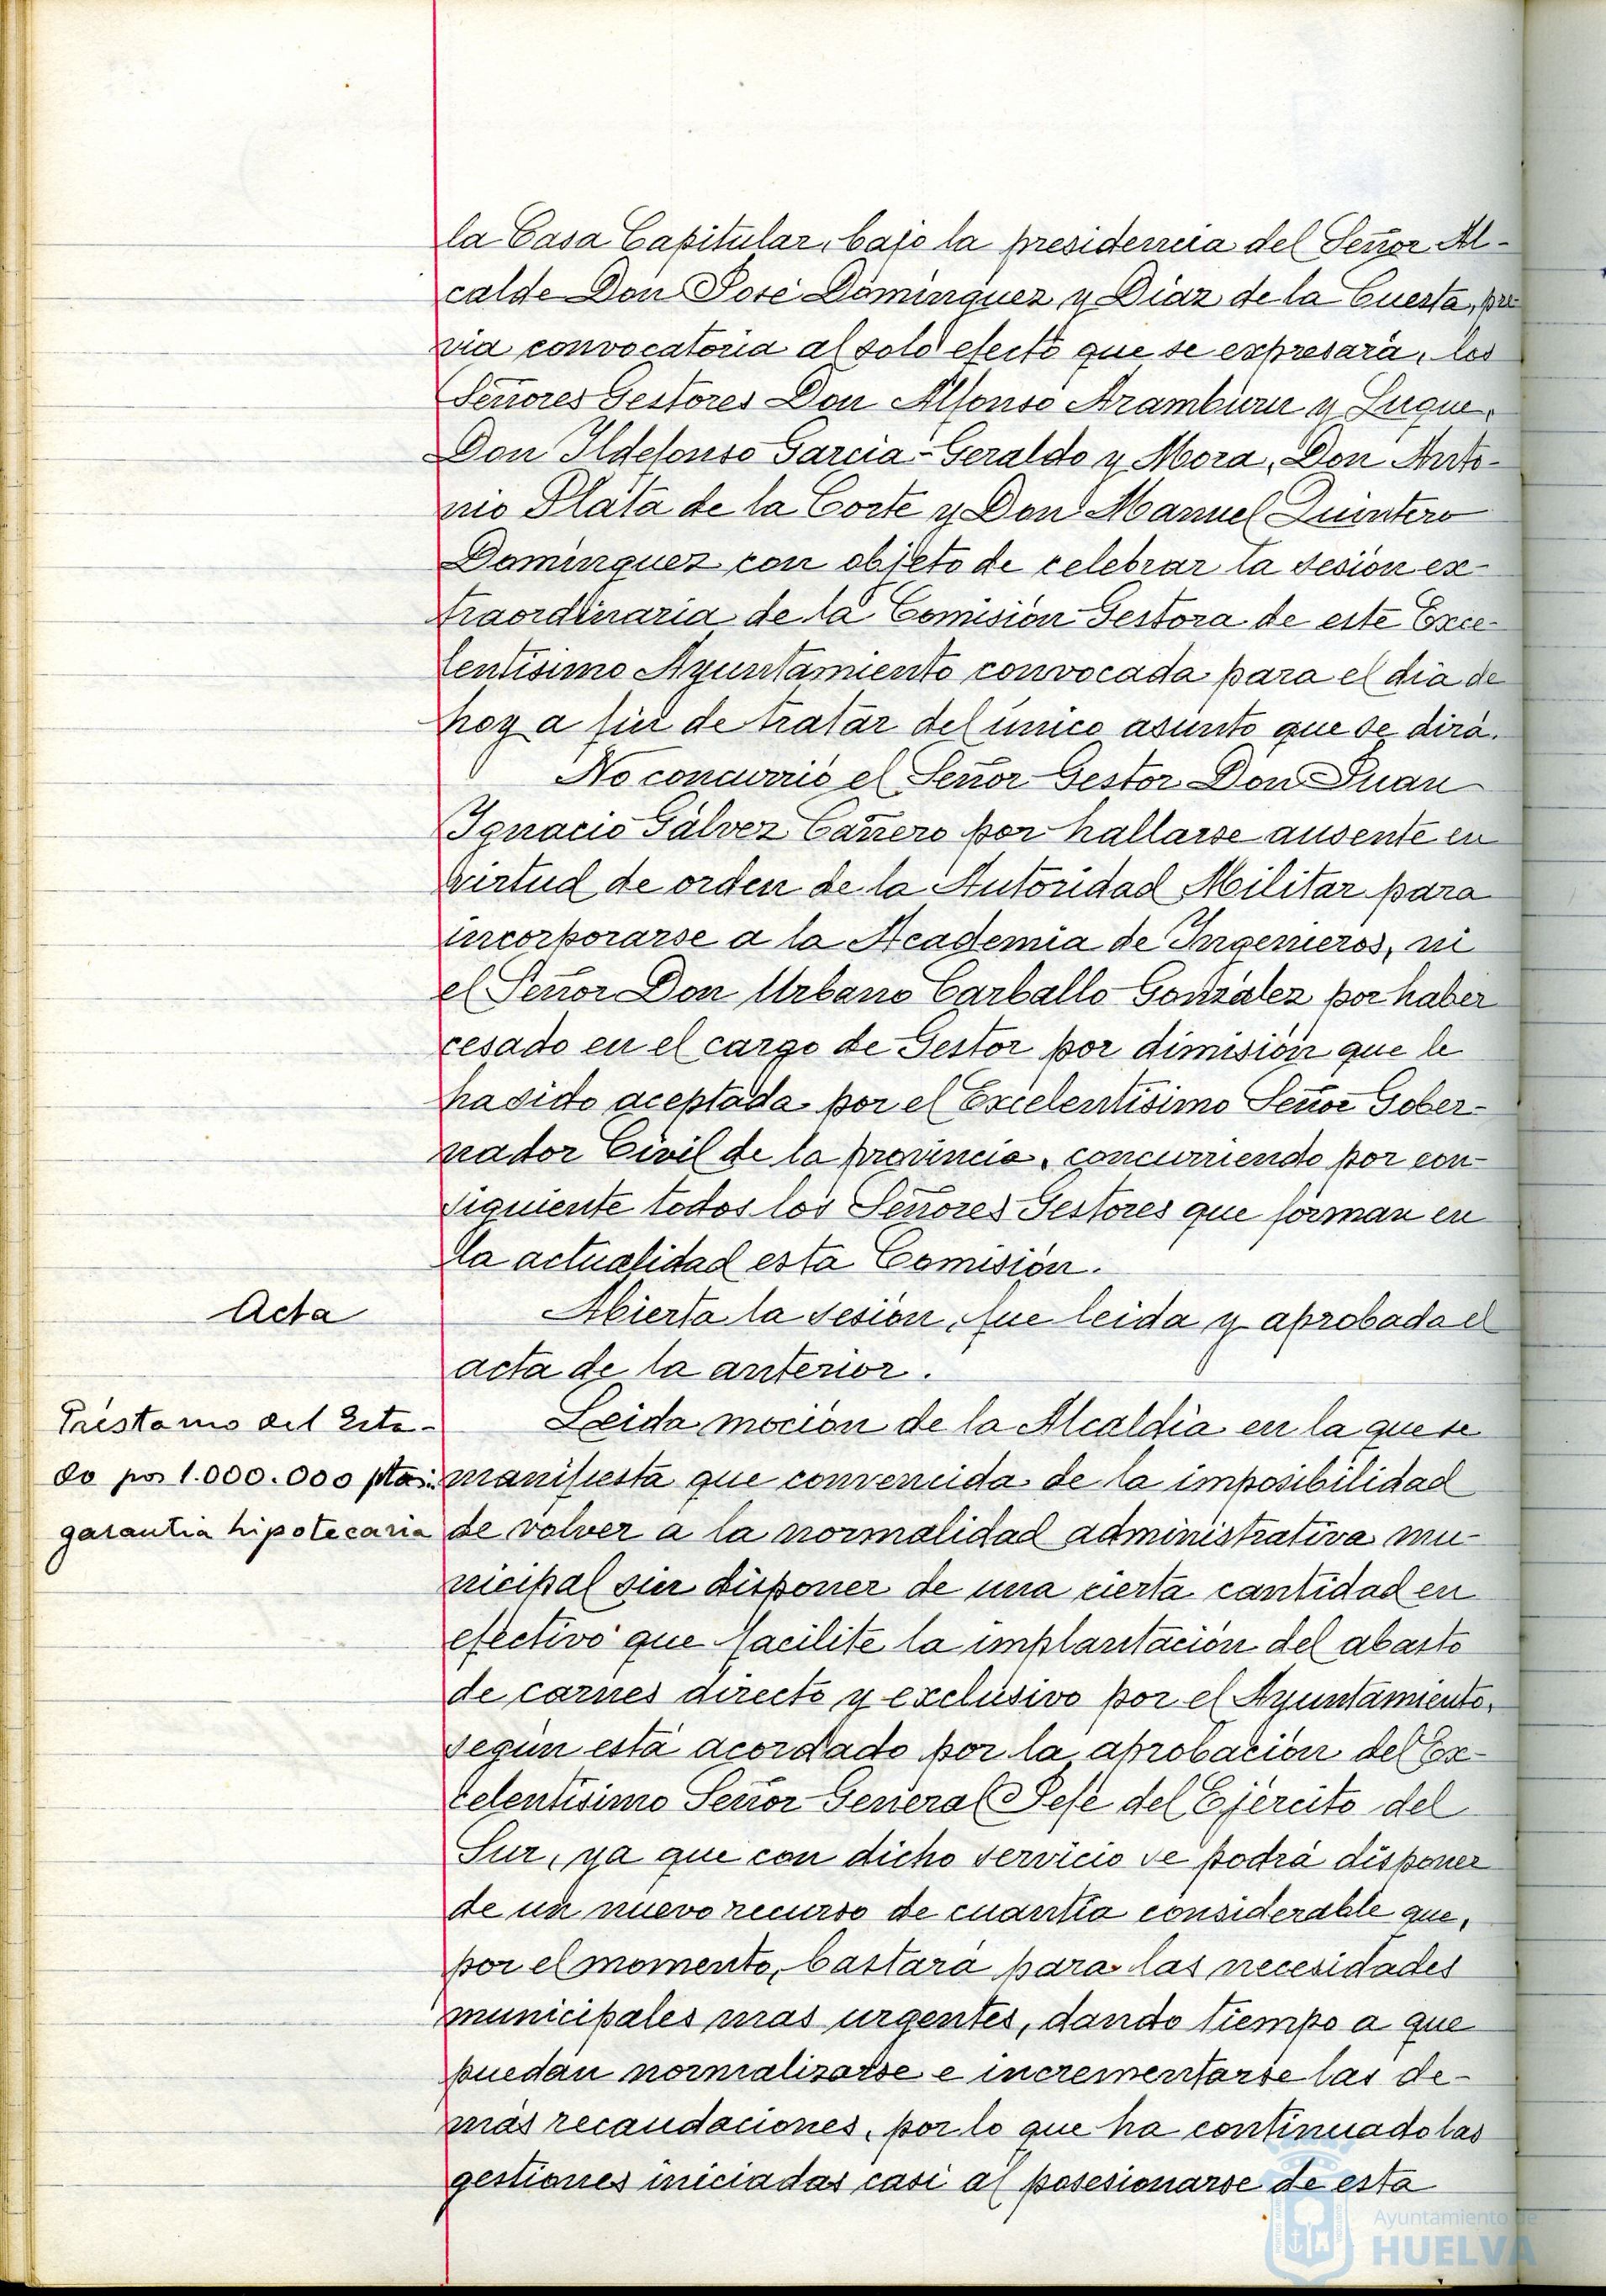 la Casa Capitular, bajo la presidencia del Señor Al-
calde Don José Dominguez y Diaz de la Cuesta, pre-
via convocatoria al solo efecto que se expresará, los
Señores Gestores Don Alfonso Aramburu y Luque,
Don Ildefonso Garcia-Geraldo y Mora, Don Anto-
nio Plata de la Corte y Don Manuel Quintero
Dominguez con objeto de celebrar la sesión ex-
traordinaria de la Comisión Gestora de este Exce-
lentisimo Ayuntamiento convocada para el dia de
hoy a fin de tratar del único asunto que se dirá.
No concurrió el Señor Gestor Don Juan
Ignacio Gálvez Cañero por hallarse ausente en
virtud de orden de la Autoridad Militar para
incorporarse a la Academia de Ingenieros, ni
el Señor Don Urbano Carballo González por haber
cesado en el cargo de Gestor por dimisión que le
ha sido aceptada por el Excelentisimo Señor Gober-
nador Civil de la provincia, concurriendo por con-
siguiente todos los Señores Gestores que forman en
la actualidad esta Comisión.
Acta
Abierta la sesión, fue leida y aprobada el
acta de la anterior.
Préstamo del Esta-
do por 1.000.000 ptas.
garantia hipotecaria
Leida moción de la Alcaldia en la que se
manifiesta que convencida de la imposibilidad
de volver a la normalidad administrativa mu-
nicipal sin disponer de una cierta cantidad en
efectivo que facilite la implantación del abasto
de carnes directo y exclusivo por el Ayuntamiento,
según está acordado por la aprobación del Ex-
celentisimo Señor General Jefe del Ejército del
Sur, ya que con dicho servicio se podrá disponer
de un nuevo recurso de cuantia considerable que,
por el momento, bastará para las necesidades
municipales mas urgentes, dando tiempo a que
puedan normalizarse e incrementarse las de-
más recaudaciones, por lo que ha continuado las
gestiones iniciadas casi al posesionarse de esta
Ayuntamiento de
HUELVA